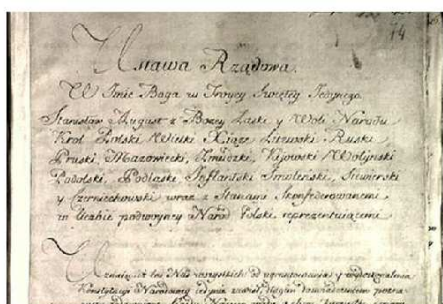 74
Ustawa Rządowa.
W Imie Boga w Troycy Swiętey Jedynego.
Stanisław August z Bozey Łaski y Woli Narodu
Krol Polski Wielki Xiąze Litewski, Ruski
Pruski, Mazowiecki, Zmudzki, Kijowski Wołyński
Podolski, Podlaski Inflantski Smoleński, Siewierski
y Czerniechowski wraz z Stanami Skonfederowanemi
w liczbie podwoyney Narod Polski reprezentuiącemi
Uznaiąc iz los Nas wszystkich od ugruntowania y wydoskonalenia
Konstytucyi Narodowey iedynie zawisł, długim doswiadczeniem